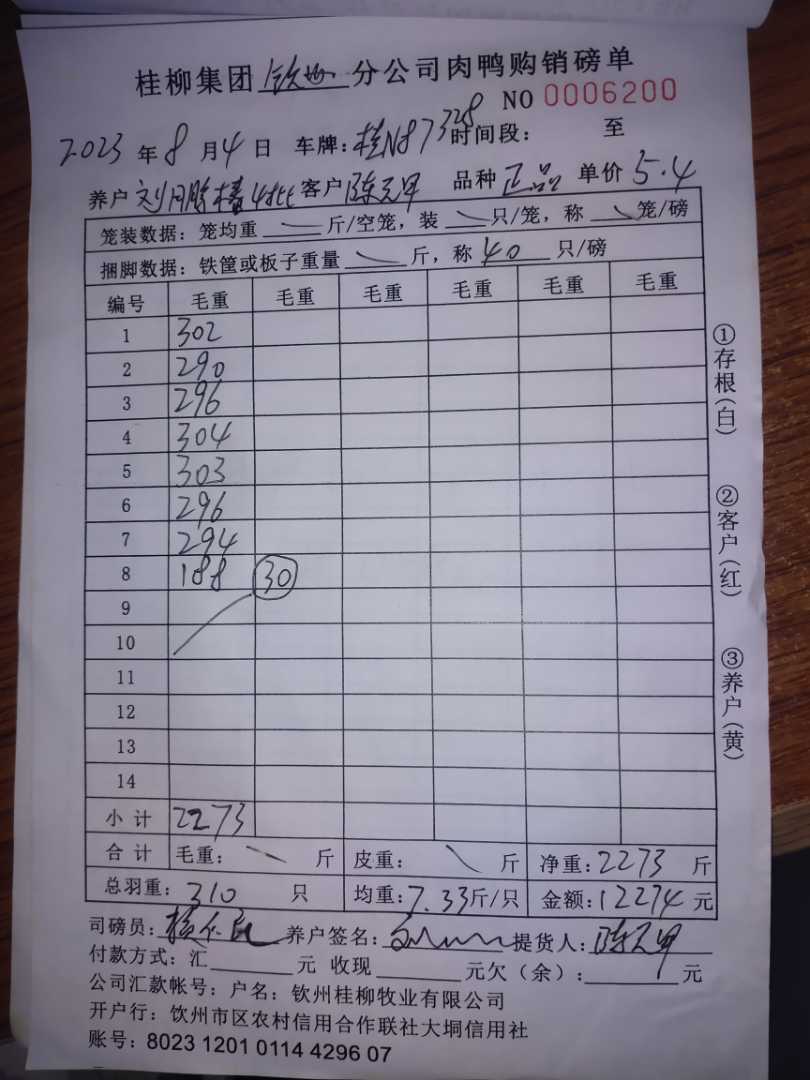 桂柳集团 钦州 分公司肉鸭购销磅单
NO 0006200
2023 年 8 月 4 日 车牌: 桂N87328 时间段: 至
养户 刘 客户 陈元甲 品种 正品 单价 5.4
笼装数据: 笼均重 斤/空笼, 装 只/笼, 称 笼/磅
捆脚数据: 铁筐或板子重量 斤, 称 40 只/磅
编号 毛重 毛重 毛重 毛重 毛重 毛重
1 302
2 290
3 296
4 304
5 303
6 296
7 294
8 188 30
9
10
11
12
13
14
小计 2273
合计 毛重: 斤 皮重: 斤 净重: 2273 斤
总羽重: 310 只 均重: 7.33 斤/只 金额: 12274 元
司磅员: 养户签名: 提货人: 陈元甲
付款方式: 汇 元 收现 元欠(余): 元
公司汇款帐号: 户名: 钦州桂柳牧业有限公司
开户行: 饮州市区农村信用合作联社大垌信用社
账号: 8023 1201 0114 4296 07
①存根(白)
②客户(红)
③养户(黄)